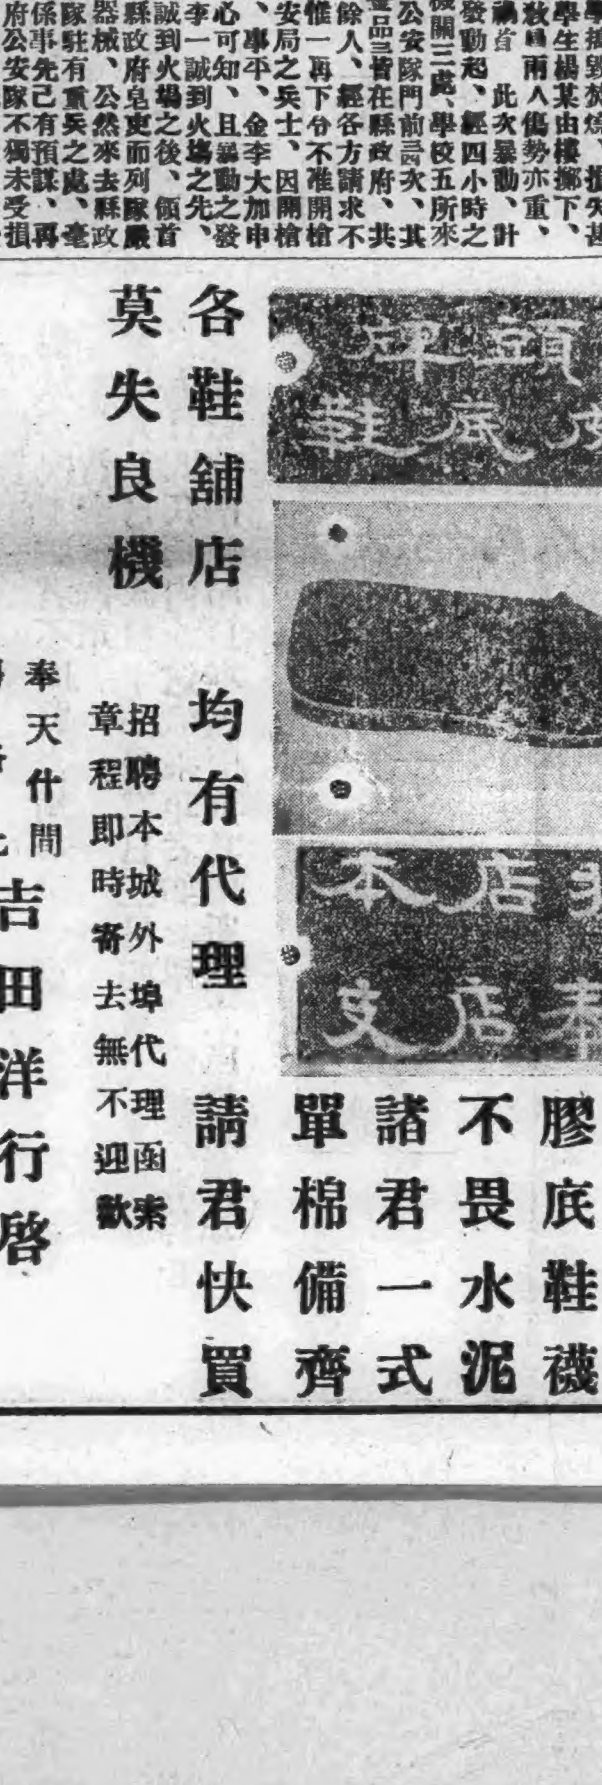 毀焚燒、損失甚
學生楊某由樓擲下、
兩人傷勢亦重、
此次暴動、計
發動起、經四小時之
機關三處、學校五所來
公安隊門前三四次、其
品皆在縣政府、共
餘人、經各方請求不
惟一再下令不准開槍
安局之兵士、因開槍
、事平、金李大加申
心可知、且暴動之發
李一誠到火塲之先、
誠到火塲之後、領首
縣政府皂吏而列隊嚴
器械、公然來去縣政
隊駐有重兵之處、毫
係事先已有預謀、再
府公安隊不獨未受損
頭牌
底鞋
本店
支店奉
膠底鞋襪
不畏水泥
諸君一式
單棉備齊
各鞋舖店 均有代理 請君快買
莫失良機
招聘本城外埠代理函索
章程即時寄去無不迎歡
奉天什間
吉田洋行啓